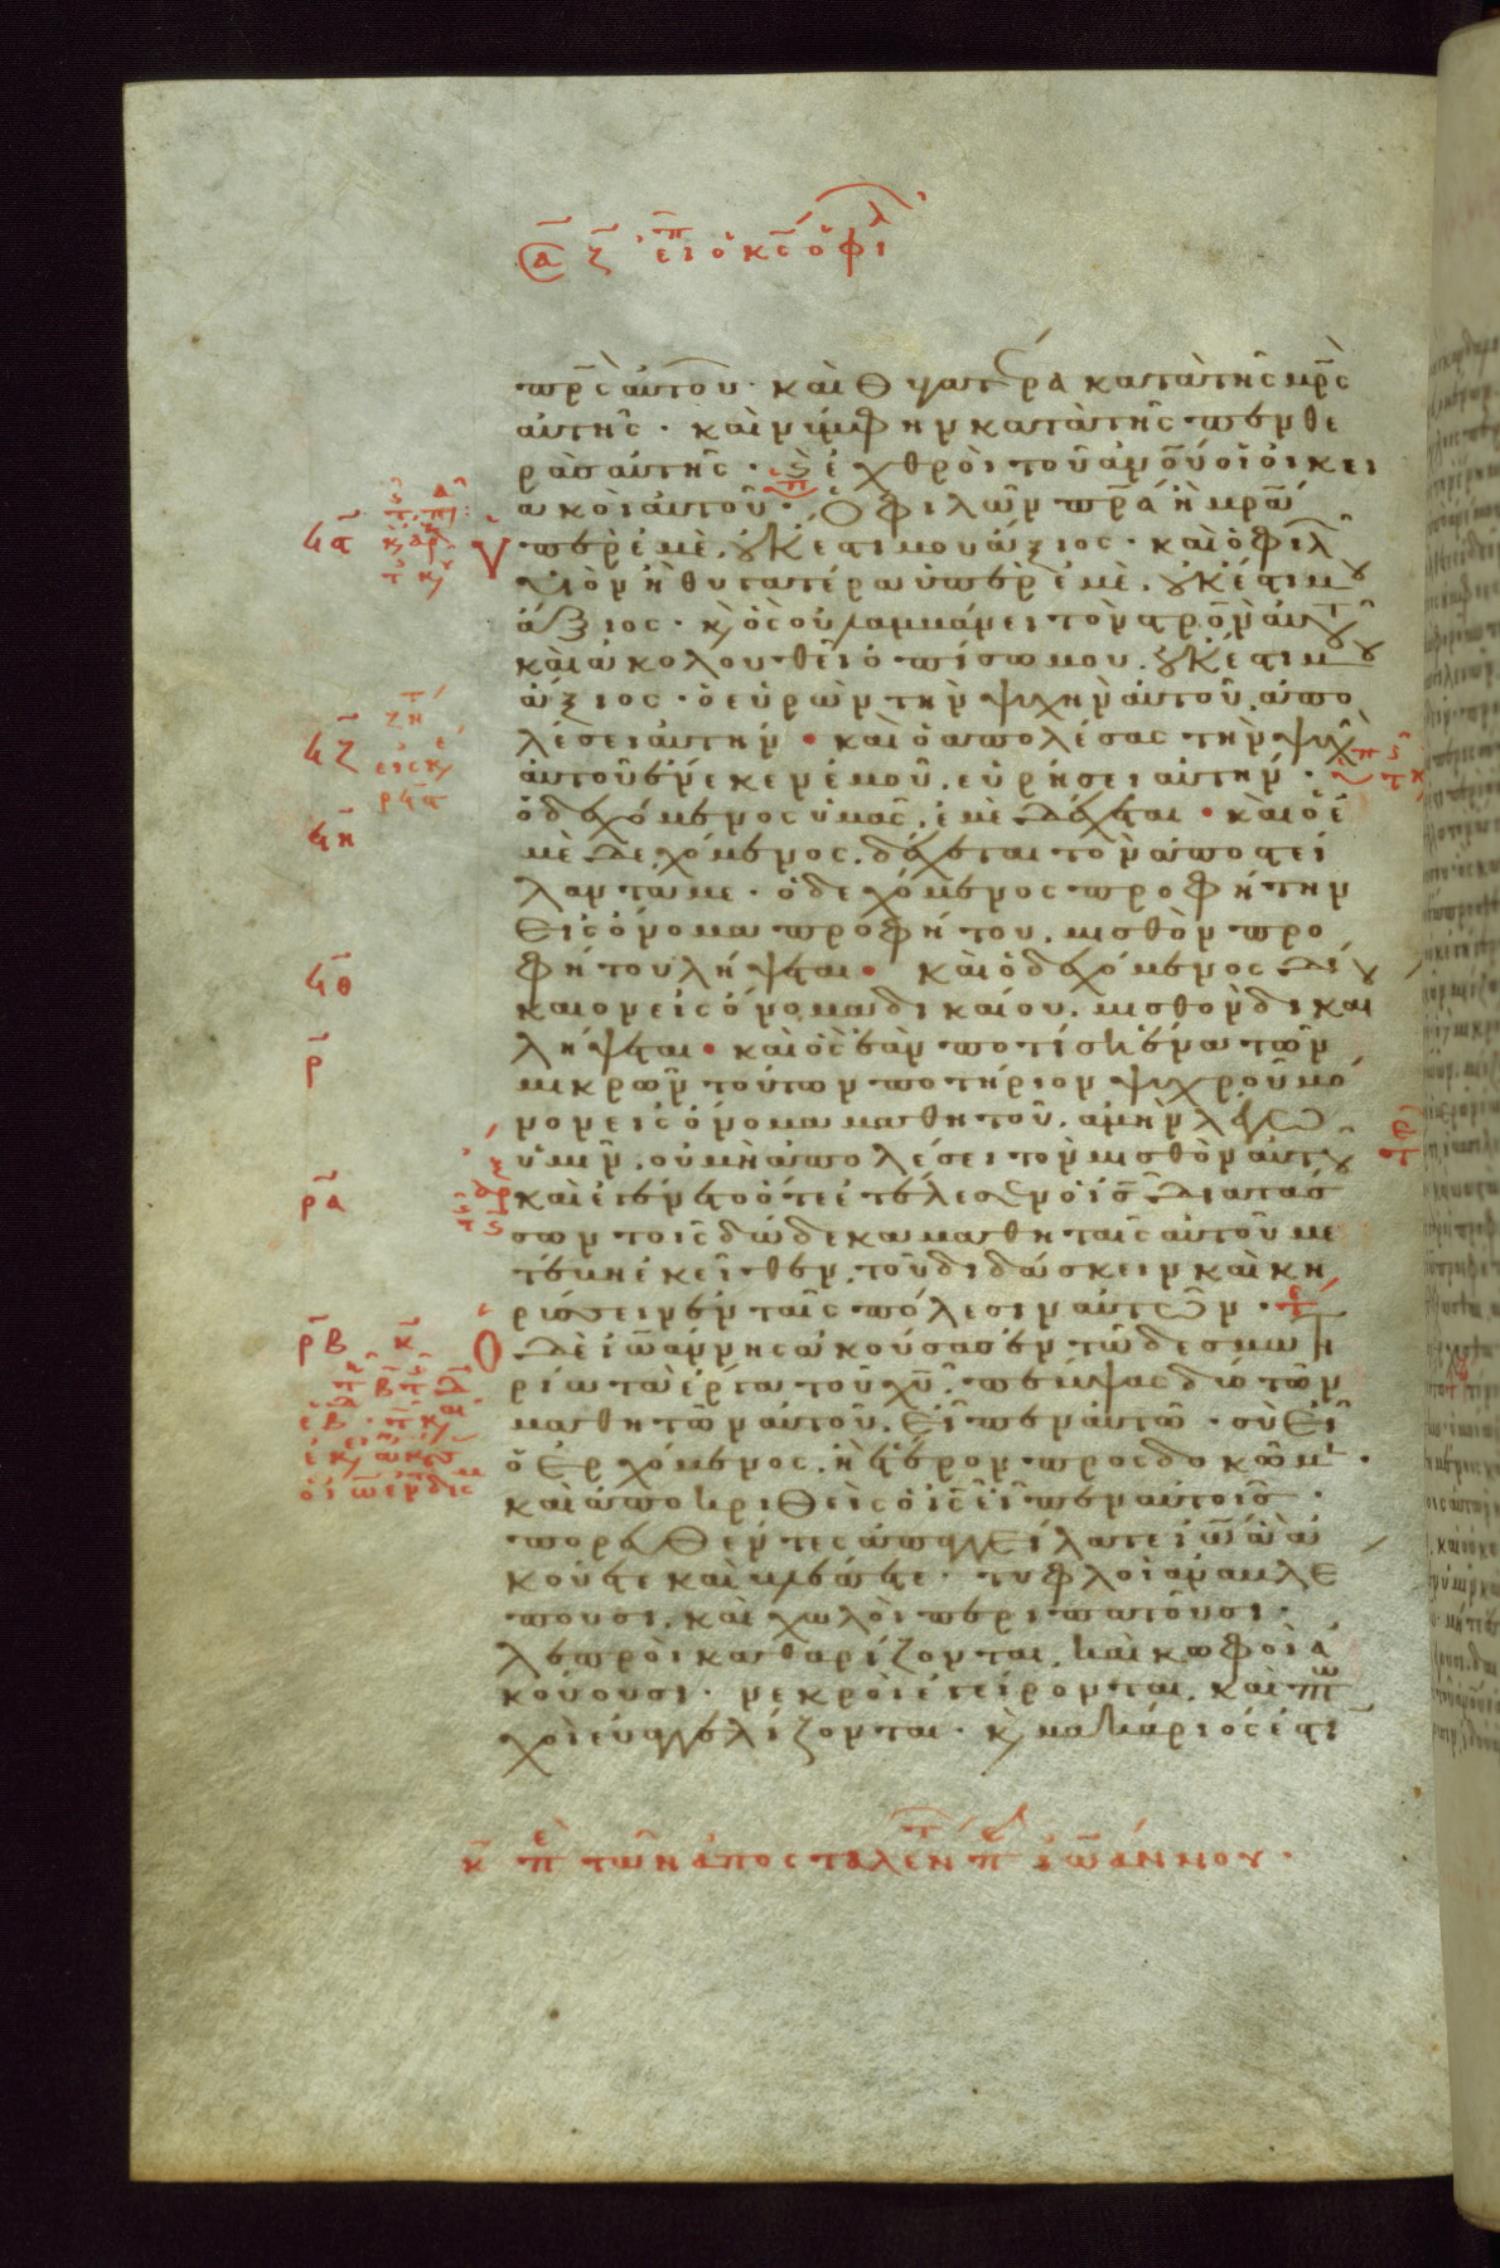 πρ̅ς αὐτοῦ · καὶ θυγατέρα κατὰ τῆς μρ̅ς
αὐτῆς · καὶ νύμφην κατὰ τῆς πενθε
ρᾶς αὐτῆς · ϗ ἐχθροὶ τοῦ ἀνο̅υ οἱ οἰκει
ακοὶ αὐτοῦ · Ὁ φιλῶν πρ̅α ἢ μρ̅α
ὑπὲρ ἐμὲ, οὐκ ἔστι μου ἄξιος · καὶ ὁ φιλ
υἱὸν ἢ θυγατέρα ὑπὲρ ἐμὲ, οὐκ ἔστι μου
ἄξιος · ϗ ὃς οὐ λαμβάνει τὸν στρο̅ν αὐτοῦ
καὶ ἀκολουθεῖ ὀπίσω μου, οὐκ ἔστι μου
ἄξιος · ὁ εὑρὼν τὴν ψυχὴν αὐτοῦ, ἀπο
λέσει αὐτήν · καὶ ὁ ἀπολέσας τὴν ψυχὴ
αὐτοῦ ἕνεκεν ἐμοῦ, εὑρήσει αὐτήν ·
ὁ δεχόμενος ὑμᾶς, ἐμὲ δέχεται · καὶ ὁ ἐ
μὲ δεχόμενος, δέχεται τὸν ἀποστεί
λαντά με · ὁ δεχόμενος προφήτην
εἰς ὄνομα προφήτου, μισθὸν προ
φήτου λήψεται · καὶ ὁ δεχόμενος δί
καιον εἰς ὄνομα δικαίου, μισθὸν δικαίου
λήψεται · καὶ ὃς ἐὰν ποτίση ἕνα τῶν
μικρῶν τούτων ποτήριον ψυχροῦ μό
νον εἰς ὄνομα μαθητοῦ, ἀμὴν λέγω
ὑμῖν, οὐ μὴ ἀπολέσει τὸν μισθὸν αὐτοῦ
καὶ ἐγένετο ὅτε ἐτέλεσεν ὁ ι̅ς διατάσ
σων τοῖς δώδεκα μαθηταῖς αὐτοῦ με
τέβη ἐκεῖθεν, τοῦ διδάσκειν καὶ κη
ρύσσειν ἐν ταῖς πόλεσιν αὐτῶν ·
Ὁ δὲ ἰω̅άννης ἀκούσας ἐν τῶ δεσμωτη
ρίω τὰ ἔργα τοῦ χυ̅, πέμψας δύο τῶν
μαθητῶν αὐτοῦ, εἶπεν αὐτῶ · σὺ εἶ
ὁ ἐρχόμενος, ἢ ἕτερον προσδοκῶμεν ·
καὶ ἀποκριθεὶς ὁ ι̅ς εἶπεν αὐτοῖς ·
πορευθέντες ἀπαγγείλατε ἰω̅ ἃ ἀ
κούετε καὶ βλέπετε · τυφλοὶ ἀναβλέ
πουσι, καὶ χωλοὶ περιπατοῦσι ·
λεπροὶ καθαρίζονται, καὶ κωφοὶ ἀ
κούουσι · νεκροὶ ἐγείρονται, καὶ πτω
χοὶ εὐαγγελίζονται · ϗ μακάριός ἐστι
κ̅ περὶ τῶν ἀποσταλέντ π ἰω̅άννου ·